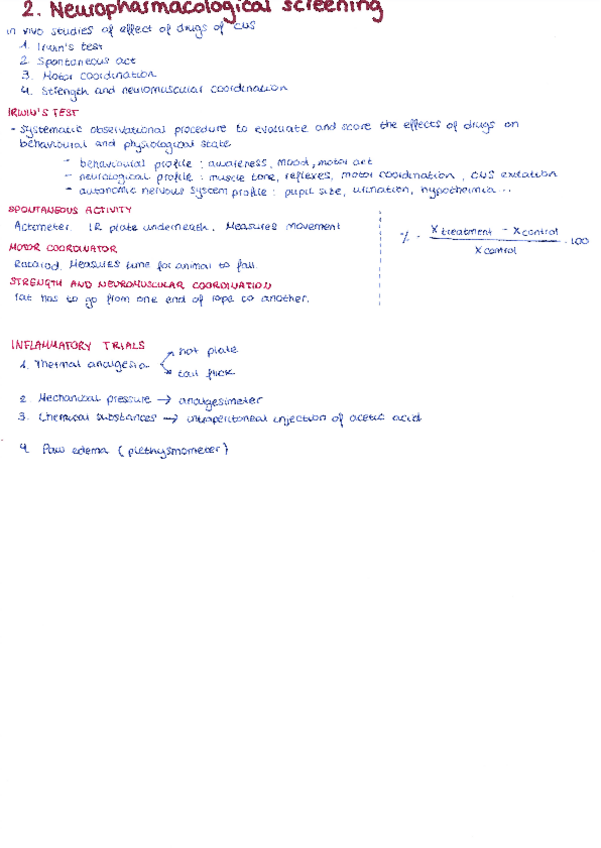 2. Neuropharmacological screening
in vivo studies of effect of drugs of CNS
1. Irwin's test
2. Spontaneous act
3. Motor coordination
4. Strength and neuromuscular coordination
IRWIN'S TEST
- Systematic observational procedure to evaluate and score the effects of drugs on
behavioural and physiological state
- behavioural profile : awareness, mood, motor act
- neurological profile : muscle tone, reflexes, motor coordination, CNS excitation
- autonomic nervous system profile : pupil size, urination, hypothermia ...
SPONTANEOUS ACTIVITY
Actometer. IR plate underneath. Measures movement
% = (X treatment - X control) / X control · 100
MOTOR COORDINATOR
Rotarod. Measures time for animal to fall.
STRENGTH AND NEUROMUSCULAR COORDINATION
rat has to go from one end of rope to another.
INFLAMMATORY TRIALS
1. Thermal analgesia → hot plate
→ tail flick
2. Mechanical pressure → analgesimeter
3. Chemical substances → intraperitoneal injection of acetic acid
4. Paw edema (plethysmometer)